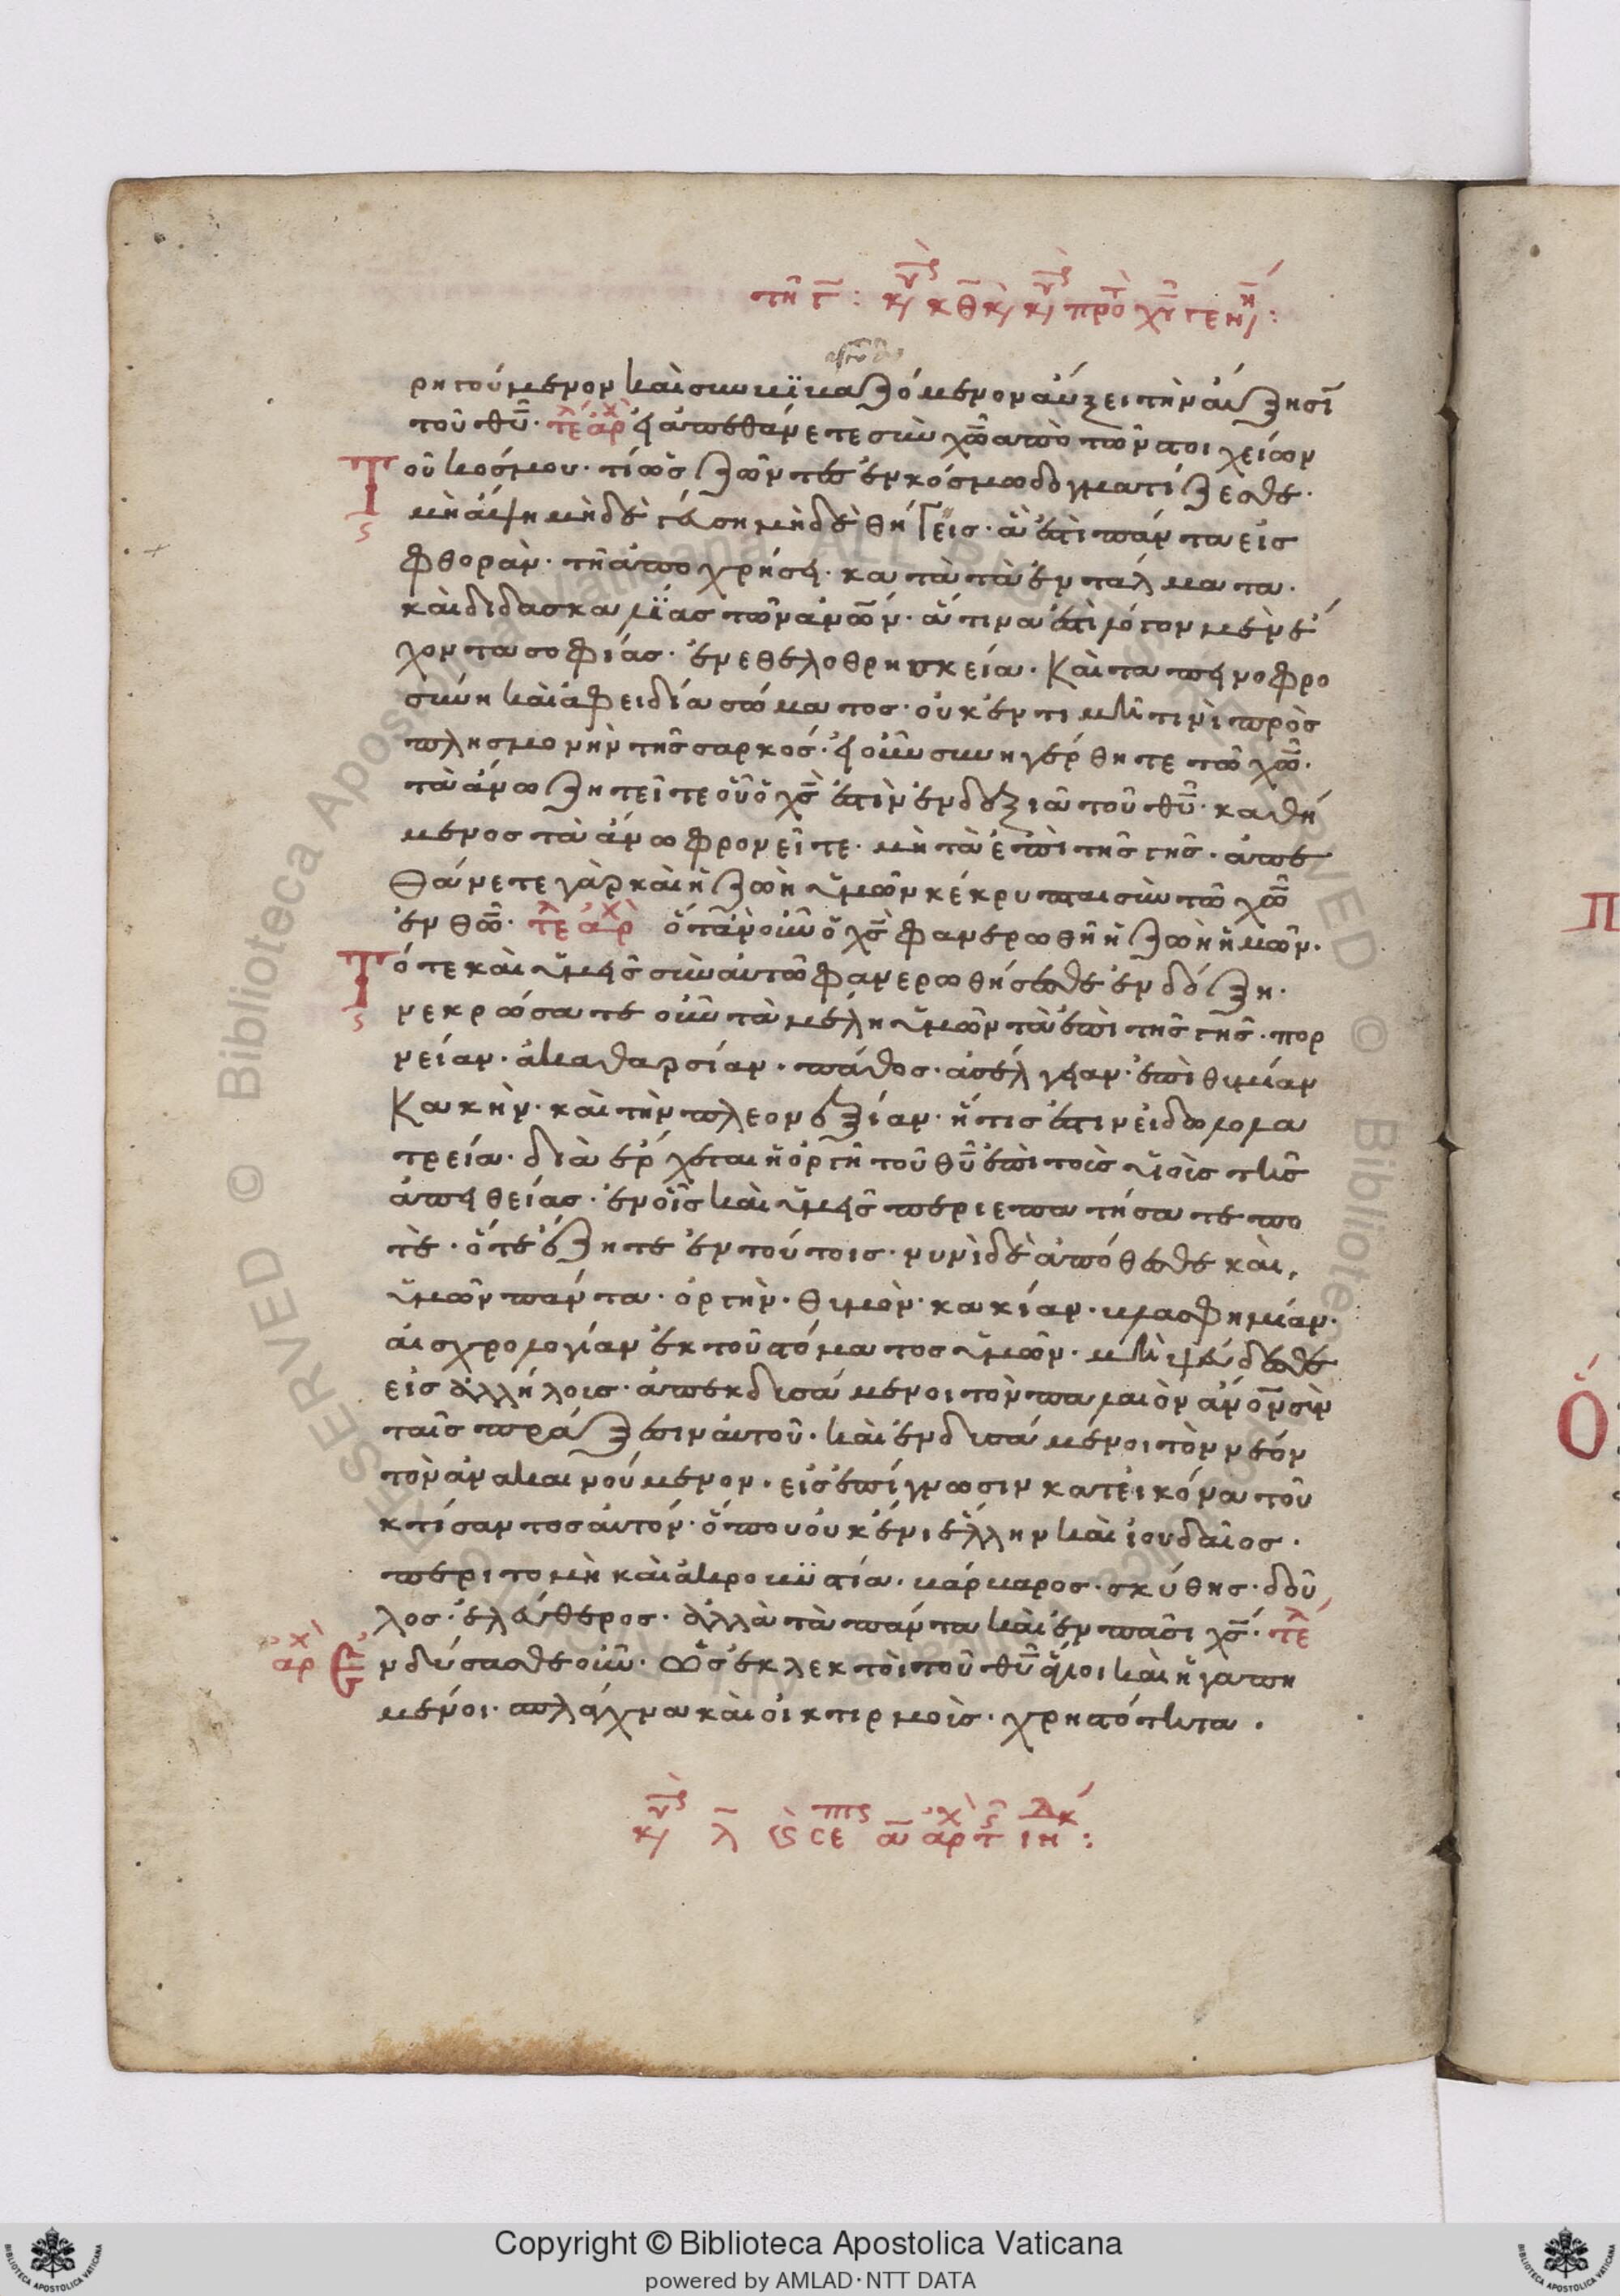 τῆ γ̅ : κυ κ̅θ κ κυ πρὸ χυ γεν :
ρηγούμενον καὶ συνβιβαζόμενον αὔξει τὴν αὔξησῑ
τοῦ θῡ· τε αρχ εἰ ἀπεθάνετε σὺν χω ἀπὸ τῶν στοιχείων
Τοῦ κόσμου· τί ὡς ζῶντες ἐν κόσμω δογματίζεσθε·
μὴ ἅψη μὴδὲ γεύση μὴδὲ θήγεις· ἅ ἐστι πάντα εἰς
φθορὰν· τῆ ἀποχρήσει· κατὰ τὰ ἐντάλματα·
καὶ διδασκαλίας τῶν ανων· ἅτινα ἐστὶ λόγον μὲν ἔ
χοντα σοφίας· ἐν ἐθελοθρησκεία· καὶ ταπεινοφρο
σύνη καὶ ἀφειδία σώματος· οὐκ ἐν τιμῆ τινὶ πρὸς
πλησμονὴν τῆς σαρκός· εἰ οὖν συνηγέρθητε τῶ χω·
τὰ ἄνω ζητεῖτε οὗ ὁ χς ἐστὶν ἐν δεξιᾶ τοῦ θῡ· καθή
μενος τὰ ἄνω φρονεῖτε· μὴ τὰ ἐπὶ τῆς γῆς· ἀπε
θάνετε γὰρ καὶ ἡ ζωὴ ὑμῶν κέκρυπται σὺν τῶ χω
ἐν θω· τε αρχ ὅταν οὖν ὁ χς φανερωθῆ ἡ ζωὴ ἡμῶν·
Τότε καὶ ὑμεῖς σὺν αὐτῶ φανερωθήσεσθε ἐν δόξη·
νεκρώσατε οὖν τὰ μέλη ὑμῶν τὰ ἐπὶ τῆς γῆς· πορ
νείαν· ἀκαθαρσίαν· πάθος· ἀσέλγειαν· ἐπιθυμίαν
κακὴν· καὶ τὴν πλεονεξίαν· ἥτις ἐστιν εἰδωλολα
τρεία· διὰ ἔρχεται ἡ ὀργὴ τοῦ θῡ ἐπὶ τοὺς υἱοὺς τῆς
ἀπειθείας· ἐν οἷς καὶ ὑμεῖς περιεπατήσατε πο
τὲ· ὅτε ἐζῆτε ἐν τούτοις· νυνὶ δὲ ἀπόθεσθε καὶ
ὑμῶν πάντα· ὀργὴν· θυμὸν· κακίαν· βλασφημίαν·
αἰσχρολογίαν ἐκ τοῦ στόματος ὑμῶν· μὴ ψεύδεσθε
εἰς ἀλλήλοις· ἀπεκδυσάμενοι τὸν παλαιὸν ανον σὺν
ταῖς πράξεσιν αὐτοῦ· καὶ ἐνδυσάμενοι τὸν νέον
τὸν ἀνακαινούμενον· εἰς ἐπίγνωσιν κατ εἰκόνα τοῦ
κτίσαντος αὐτόν· ὅπου οὐκ ἔνι ἕλλην καὶ ἰουδαῖος·
περιτομὴ καὶ ἀκροβυστία· βάρβαρος· σκύθης· δοῦ
λος· ἐλεύθερος· ἀλλὰ τὰ πάντα καὶ ἐν πᾶσι χς· τε
αρχ Ἐνδύσασθε οὖν· ὡς ἐκλεκτοὶ τοῦ θῡ ἅγιοι καὶ ἠγαπη
μένοι· σπλάγχνα καὶ οἰκτιρμοῖς· χρηστότητα·
κυ λ̅